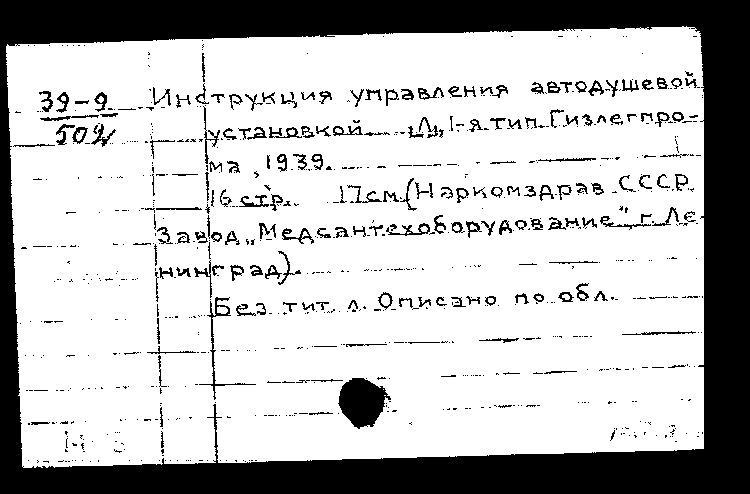 39-9 Инструкция управления автодушевой
502 установкой. Л., 1-я тип. Гизлегпро-
ма, 1939.
16 стр. 17см. (Наркомздрав СССР.
Завод „Медсантехоборудование", г. Ле-
нинград).
Без тит. л. Описано по обл.